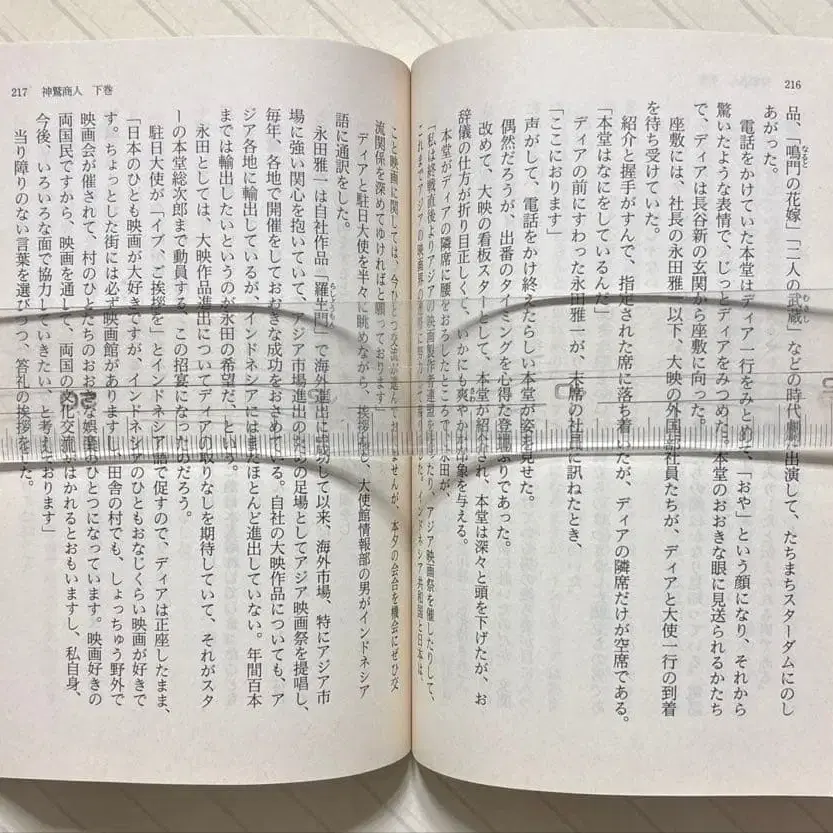 216
品、「鳴門の花嫁」「二人の武蔵」などの時代劇 出演して、たちまちスターダムにのし
あがった。
電話をかけていた本堂はディア一行をみとめ 、「おや」という顔になり、それから
驚いたような表情で、じっとディアをみつめた。本堂のおおきな眼に見送られるかたち
で、ディアは長谷新の玄関から座敷に向った。
座敷には、社長の永田雅一以下、大映の外国 社員たちが、ディアと大使一行の到着
を待ち受けていた。
紹介と握手がすんで、指定された席に落ち着いたが、ディアの隣席だけが空席である。
「本堂はなにをしているんだ」
ディアの前にすわった永田雅一が、末席の社員に訊ねたとき、
「ここにおります」
声がして、電話をかけ終えたらしい本堂が姿を見せた。
偶然だろうが、出番のタイミングを心得た登場ぶりであった。
改めて、大映の看板スターとして、本堂が紹介され、本堂は深々と頭を下げたが、お
辞儀の仕方が折り目正しくて、いかにも爽やかな印象を与える。
本堂がディアの隣席に腰をおろしたところで永田が、
「私は終戦直後よりアジアの映画製作者連盟を アジア映画祭を催したりして、
これまでアジアの映画界の インドネシア共和国と日本は、
217 神鷲商人 下巻
こと映画に関しては、今ひとつ交流が進んでおりませんが、本夕の会合を機会にぜひ交
流関係を深めてゆければと願っております」
ディアと駐日大使を半々に眺めながら、挨拶をし、大使館情報部の男がインドネシア
語に通訳をした。
永田雅一は自社作品「羅生門」で海外進出に成功して以来、海外市場、特にアジア市
場に強い関心を抱いていて、アジア市場進出のための足場としてアジア映画祭を提唱し、
毎年、各地で開催をしておおきな成功をおさめている。自社の大映作品についても、ア
ジア各地に輸出しているが、インドネシアにはまだほとんど進出していない。年間百本
までは輸出したいというのが永田の希望だ、という。
永田としては、大映作品進出についてディアの取りなしを期待していて、それがスタ
ーの本堂総次郎まで動員する、この招宴になったのだろう。
駐日大使が「イブ、ご挨拶を」とインドネシア語で促すので、ディアは正座したまま、
「日本のひとも映画が大好きですが、インドネシアのひともおなじくらい映画が好きで
す。ちょっとした街には必ず映画館がありますし、田舎の村でも、しょっちゅう野外で
映画会が催されて、村のひとたちのおおきな娯楽のひとつになっています。映画好きの
両国民ですから、映画を通して、両国の文化交流がはかれるとおもいますし、私自身、
今後、いろいろな面で協力していきたい、と考えております」
当り障りのない言葉を選びつつ、答礼の挨拶をした。